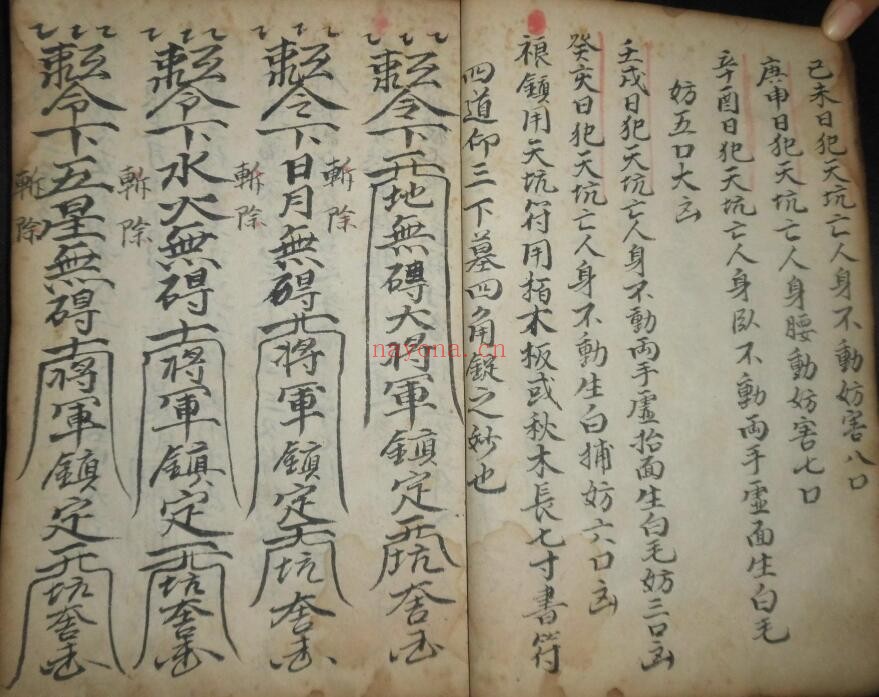 己未日犯天坑亡人身不動妨害八口
庚申日犯天坑亡人身腰動妨害七口
辛酉日犯天坑亡人身臥不動両手虛面生白毛
妨五口大凶
壬戌日犯天坑亡人身不動両手虛抬面生白毛妨三口凶
癸亥日犯天坑亡人身不動生白捕妨六口凶
鎮用天坑符用栢木板或秋木長七寸書符
四道仰三下墓四角錠之妙也
令下天地無礙大將軍鎮定天坑
斬除
令下日月無碍大將軍鎮定天坑
斬除
令下水火無碍大將軍鎮定天坑
斬除
令下五星無碍大將軍鎮定天坑
斬除
nayona.cn